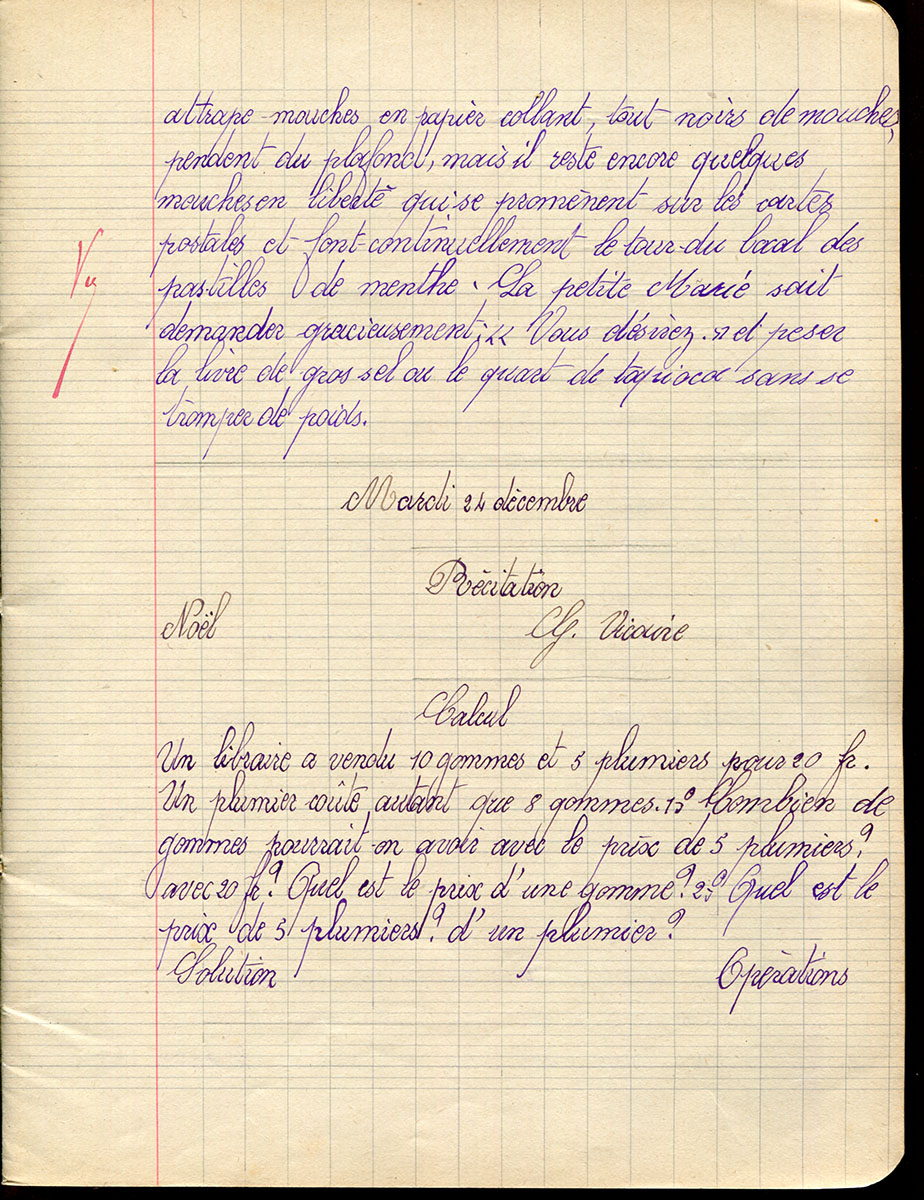 attrape-mouches en papier collant, tout noirs de mouches,
pendent du plafond, mais il reste encore quelques
mouches en liberté qui se promènent sur les cartes
postales et font continuellement le tour du bocal des
pastilles de menthe. La petite Marie sait
Vu
demander gracieusement: << Vous désirez. >> et peser
la livre de gros sel ou le quart de tapioca sans se
tromper de poids.
Mardi 24 décembre
Récitation
Noël G. Vicaire
Calcul
Un libraire a vendu 10 gommes et 5 plumiers pour 20 fr.
Un plumier coûte autant que 8 gommes. 1° Combien de
gommes pourrait-on avoir avec le prix de 5 plumiers?
avec 20 fr? Quel est le prix d'une gomme? 2° Quel est le
prix de 5 plumiers? d'un plumier?
Solution Opérations